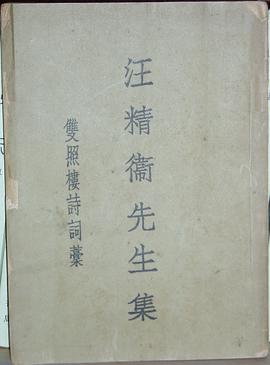 汪精衞先生集
雙照樓詩詞藁